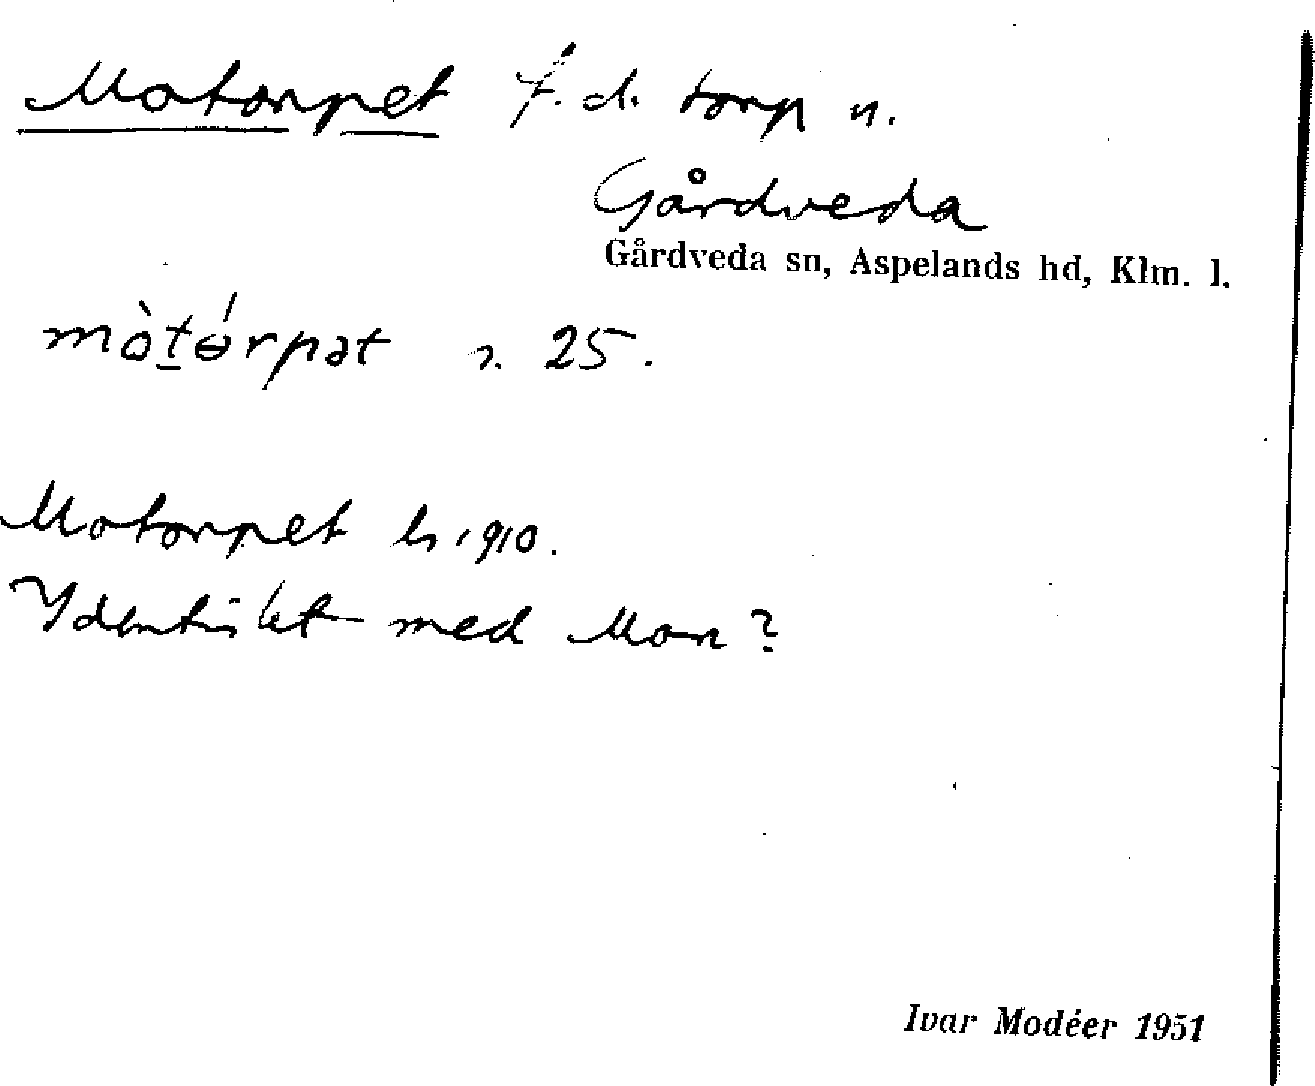 Motorpet f.d. torp u.
Gårdveda
Gårdveda sn, Aspelands hd, Klm. l.
mòtɵ́rpət n. 25.
Motorpet hs 1910.
Identiskt med Mon?
Ivar Modéer 1951